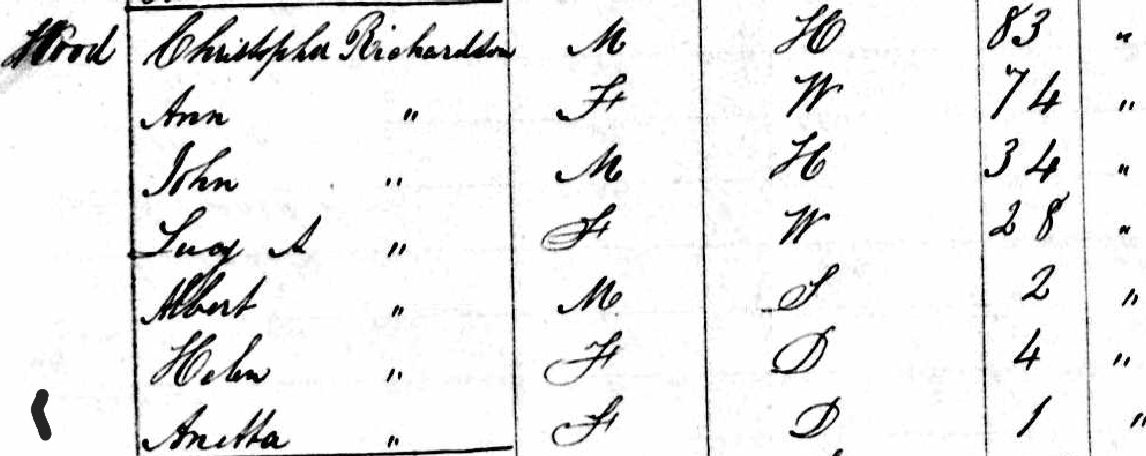 Wood Christopher Richardson M H 83 "
Ann " F W 74 "
John " M H 34 "
Lucy A " F W 28 "
Albert " M S 2 "
Helen " F D 4 "
Anetta " F D 1 "